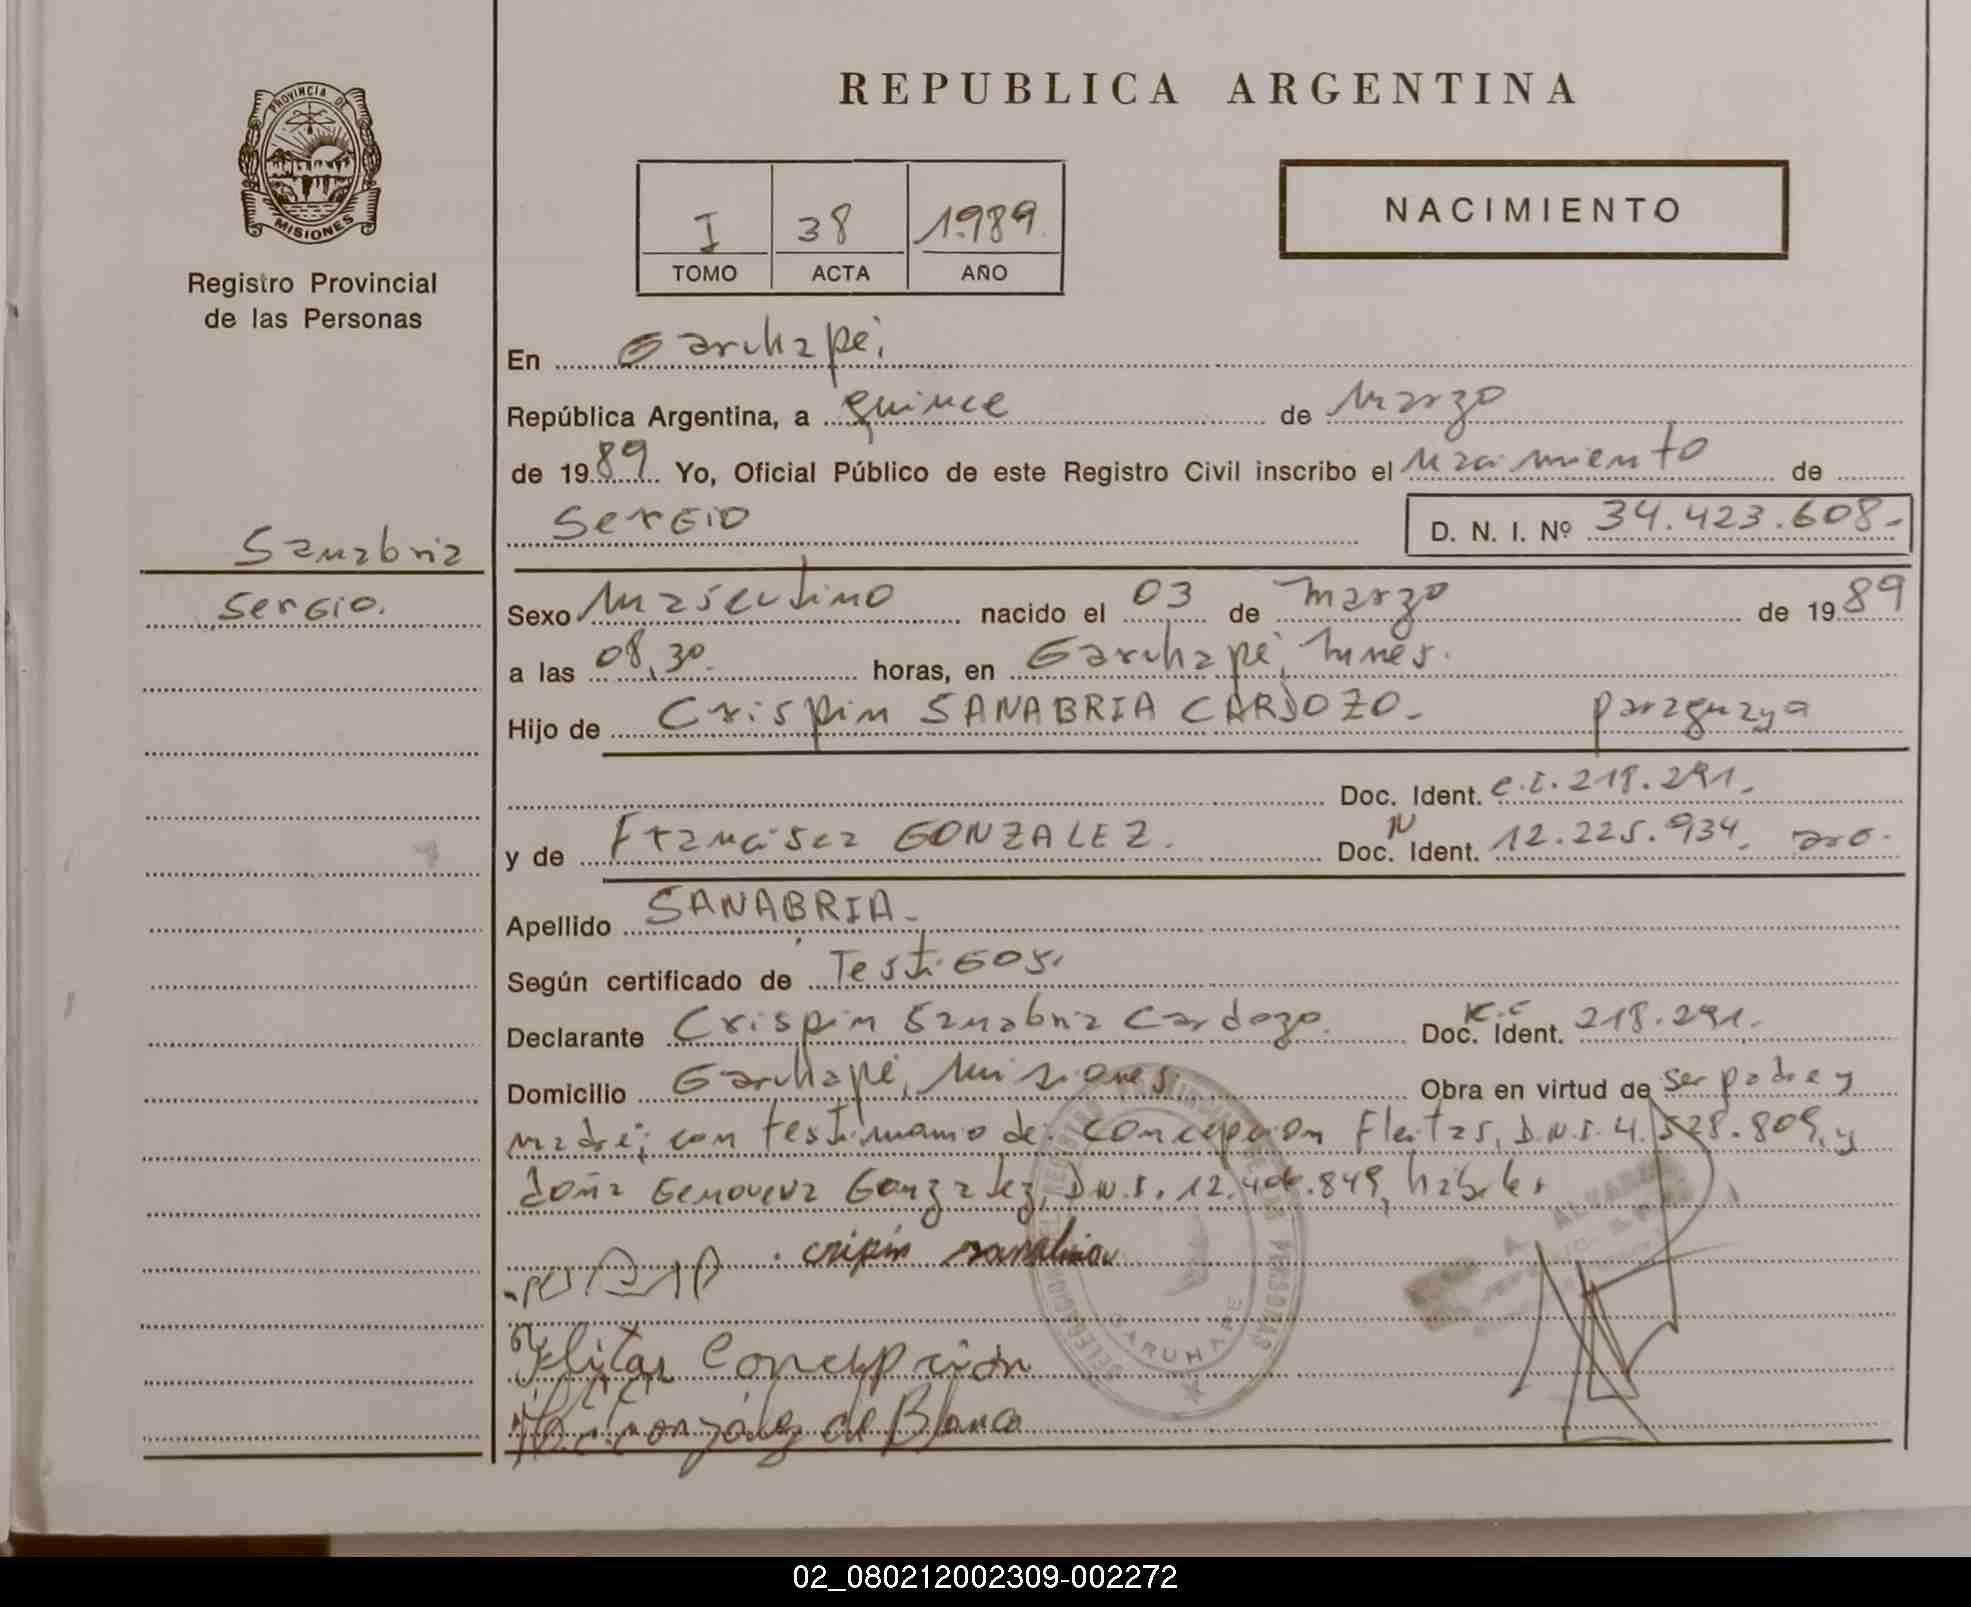 PROVINCIA DE
MISIONES
Registro Provincial
de las Personas
Sanabria
Sergio.
REPUBLICA ARGENTINA
I 38 1.989
TOMO ACTA AÑO
NACIMIENTO
En Garuhapé,
República Argentina, a quince de Marzo
de 1989 Yo, Oficial Público de este Registro Civil inscribo el Nacimiento de
Sergio D. N. I. Nº 34.423.608.-
Sexo Masculino nacido el 03 de Marzo de 1989
a las 08,30. horas, en Garuhapé,
Hijo de Crispin SANABRIA CARDOZO.- paraguaya
Doc. Ident. C.I. 218.291.
y de Francisca GONZALEZ. Doc. Ident. 12.225.934.
Apellido SANABRIA.-
Según certificado de Testigos.
Declarante Crispin Sanabria Cardozo. Doc. Ident. 218.291.
Domicilio Garuhapé, Misiones. Obra en virtud de ser padre y
madre; con testimonio de: Concepcion Fleitas, D.N.I. 4.528.809, y
doña Genoveva Gonzalez, D.N.I. 12. .849, habiles
cripin sanabria
Concepción
Gonzáles de Blanco
DELEGACION
GARUHAPE
ALVAREZ
02_080212002309-002272